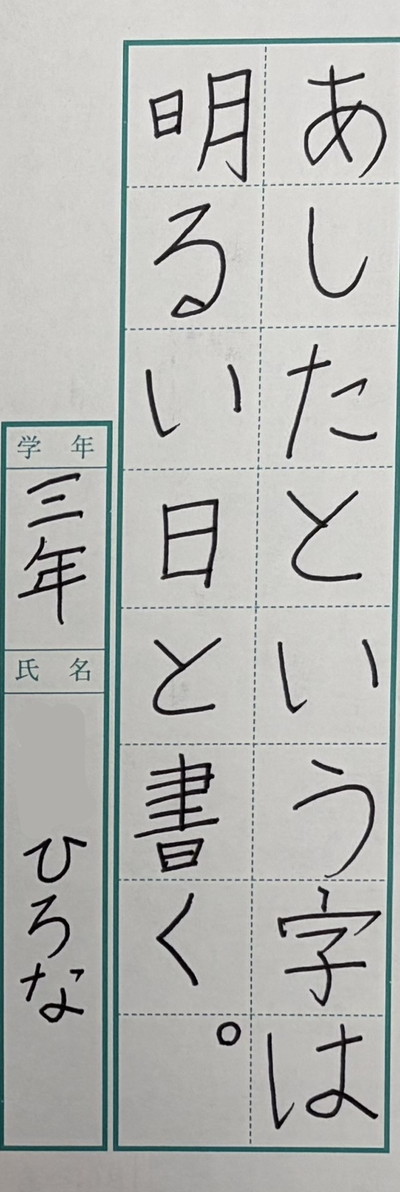 あしたという字は
明るい日と書く。
学年
三年
氏名
ひろな